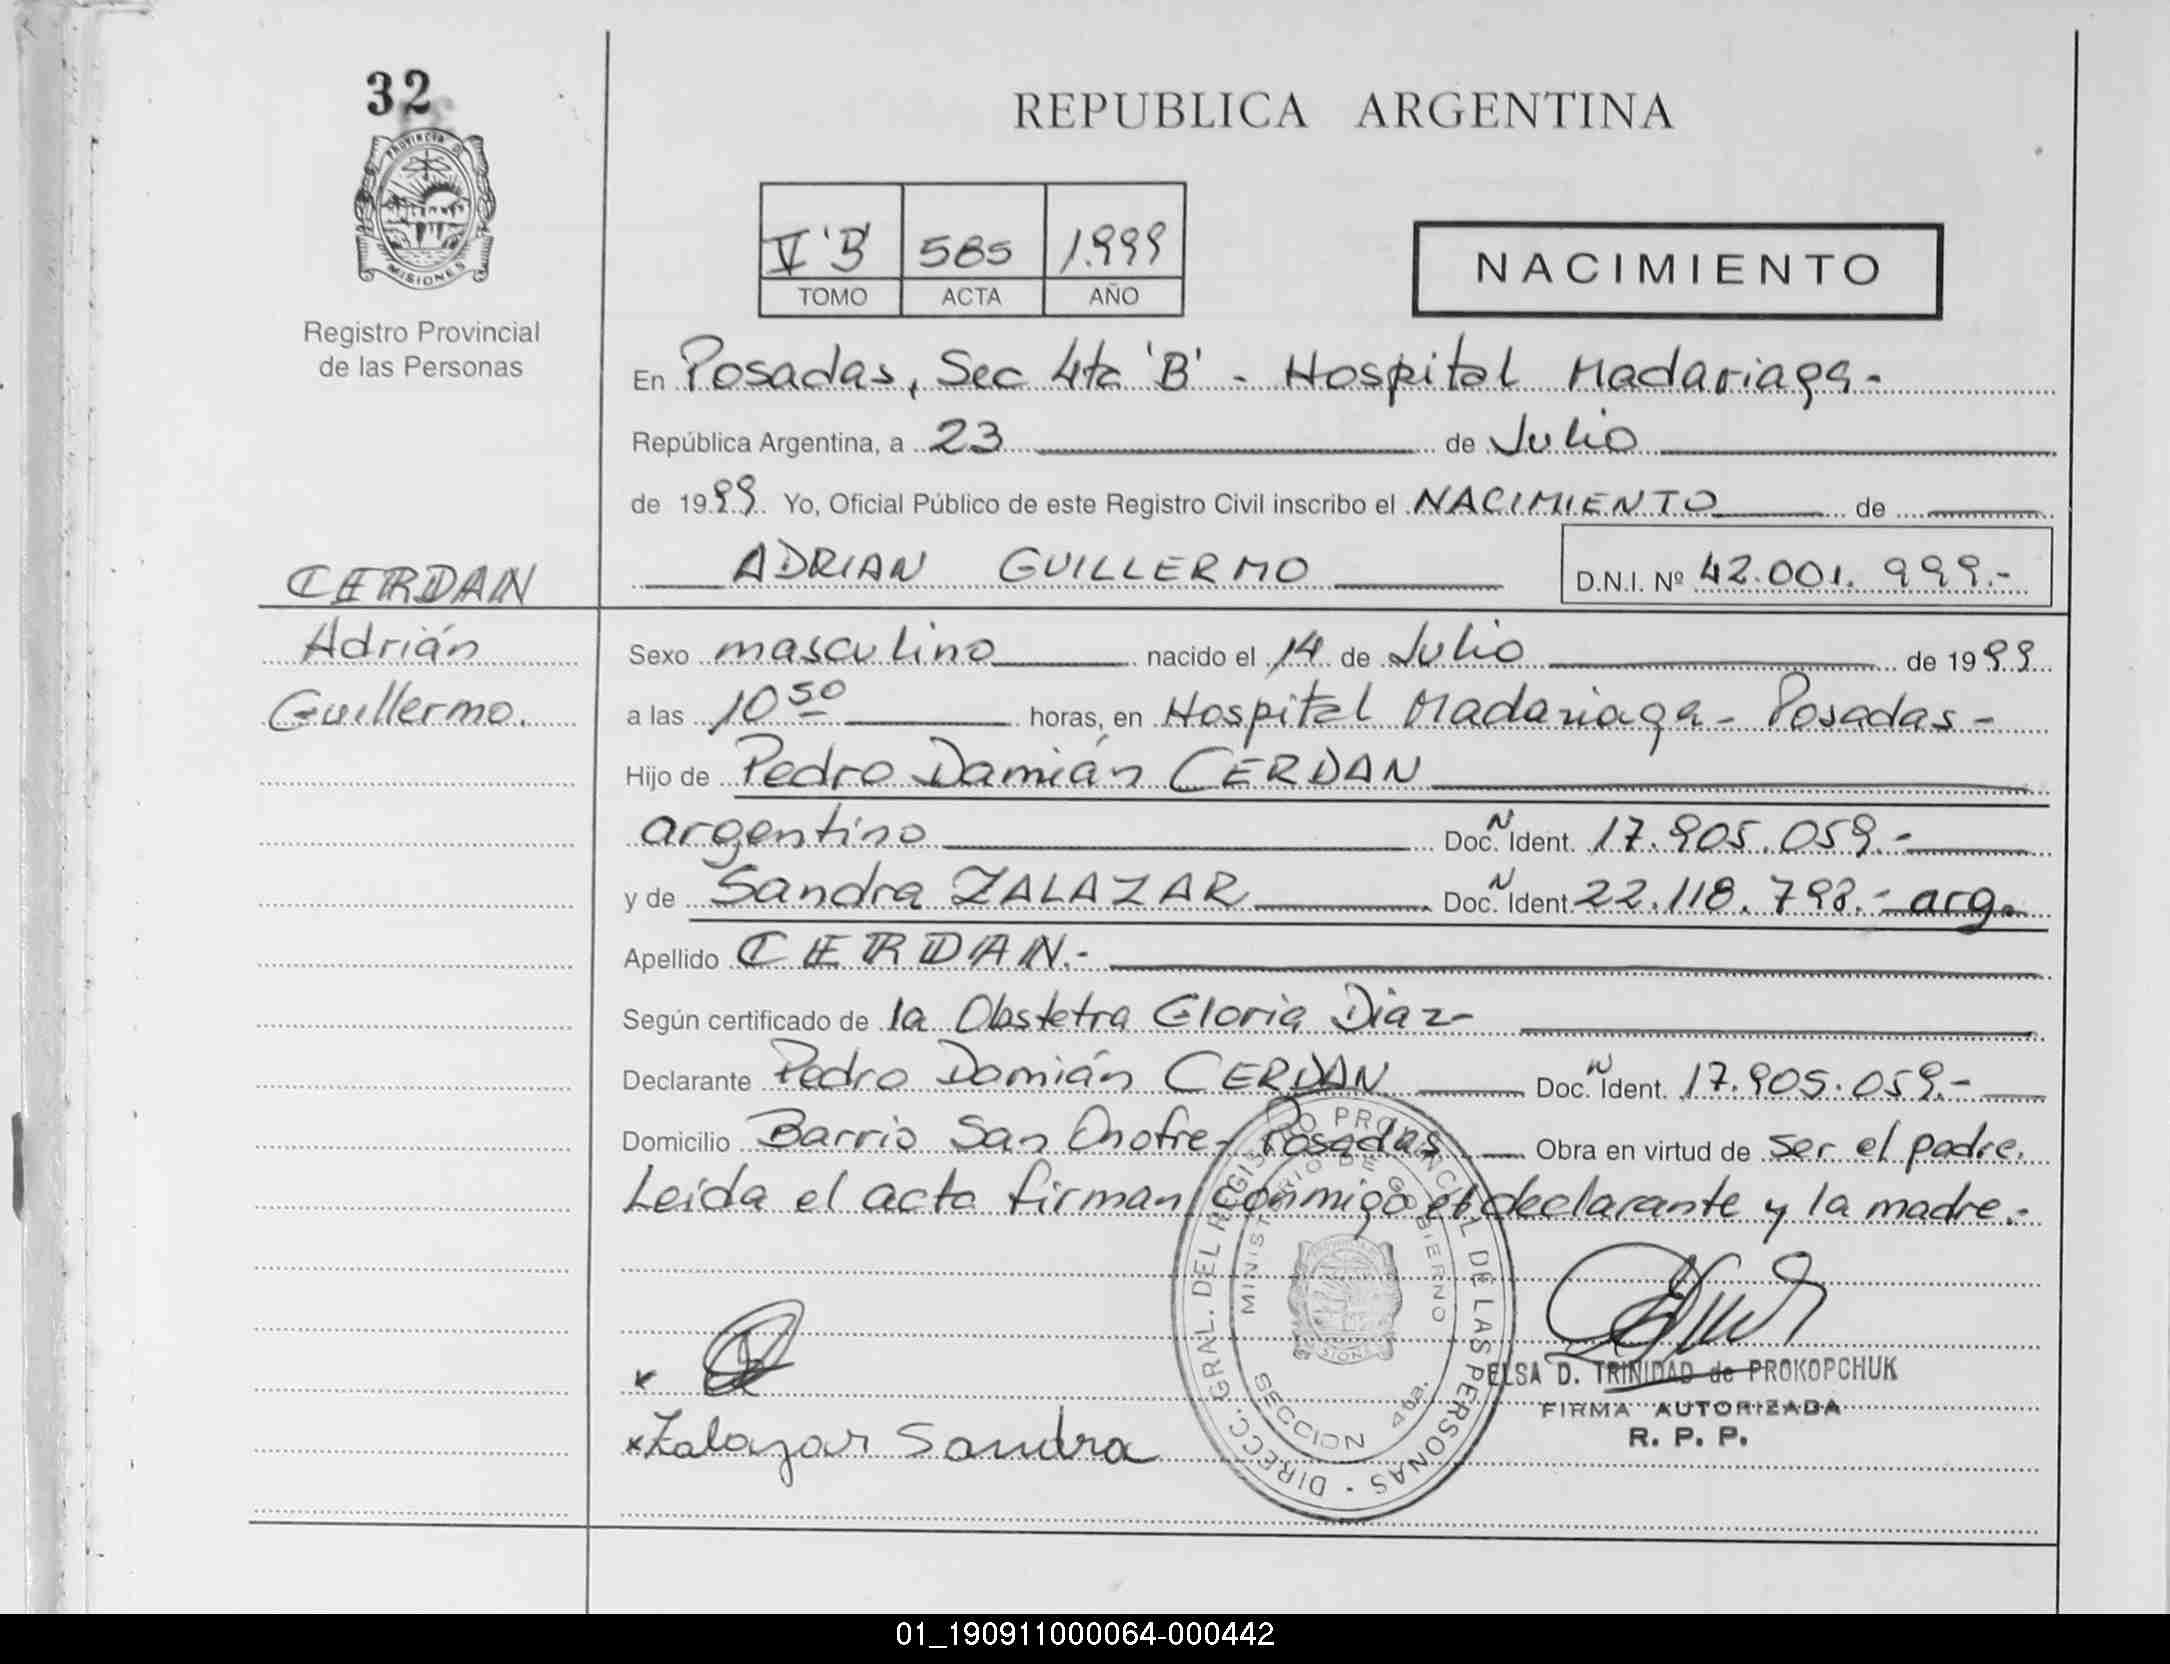 32
PROVINCIA D
MISIONES
Registro Provincial
de las Personas
CERDAN
Adrián
Guillermo.
REPUBLICA ARGENTINA
V 'B' 585 1.999
TOMO ACTA AÑO
NACIMIENTO
En Posadas, Sec 4ta 'B' - Hospital Madariaga-
República Argentina, a 23 de Julio
de 1999 Yo, Oficial Público de este Registro Civil inscribo el NACIMIENTO de
ADRIAN GUILLERMO D.N.I. Nº 42.001.999.-
Sexo masculino nacido el 14 de Julio de 1999
a las 10 50 horas, en Hospital Madariaga - Posadas -
Hijo de Pedro Damián CERDAN
argentino Doc. N Ident. 17.905.059.-
y de Sandra ZALAZAR Doc. N Ident. 22.118.798.- arg.
Apellido CERDAN.-
Según certificado de la Obstetra Gloria Diaz-
Declarante Pedro Damián CERDAN Doc. N Ident. 17.905.059.-
Domicilio Barrio San Onofre- Posadas Obra en virtud de ser el padre.
Leida el acta firman conmigo el declarante y la madre.-
DIRECC. GRAL. DEL REGISTRO PROVINCIAL DE LAS PERSONAS -
MINISTERIO DE GOBIERNO
SECCION 4ta.
ELSA D. TRINIDAD de PROKOPCHUK
FIRMA AUTORIZADA
R. P. P.
x Zalazar Sandra
01_190911000064-000442